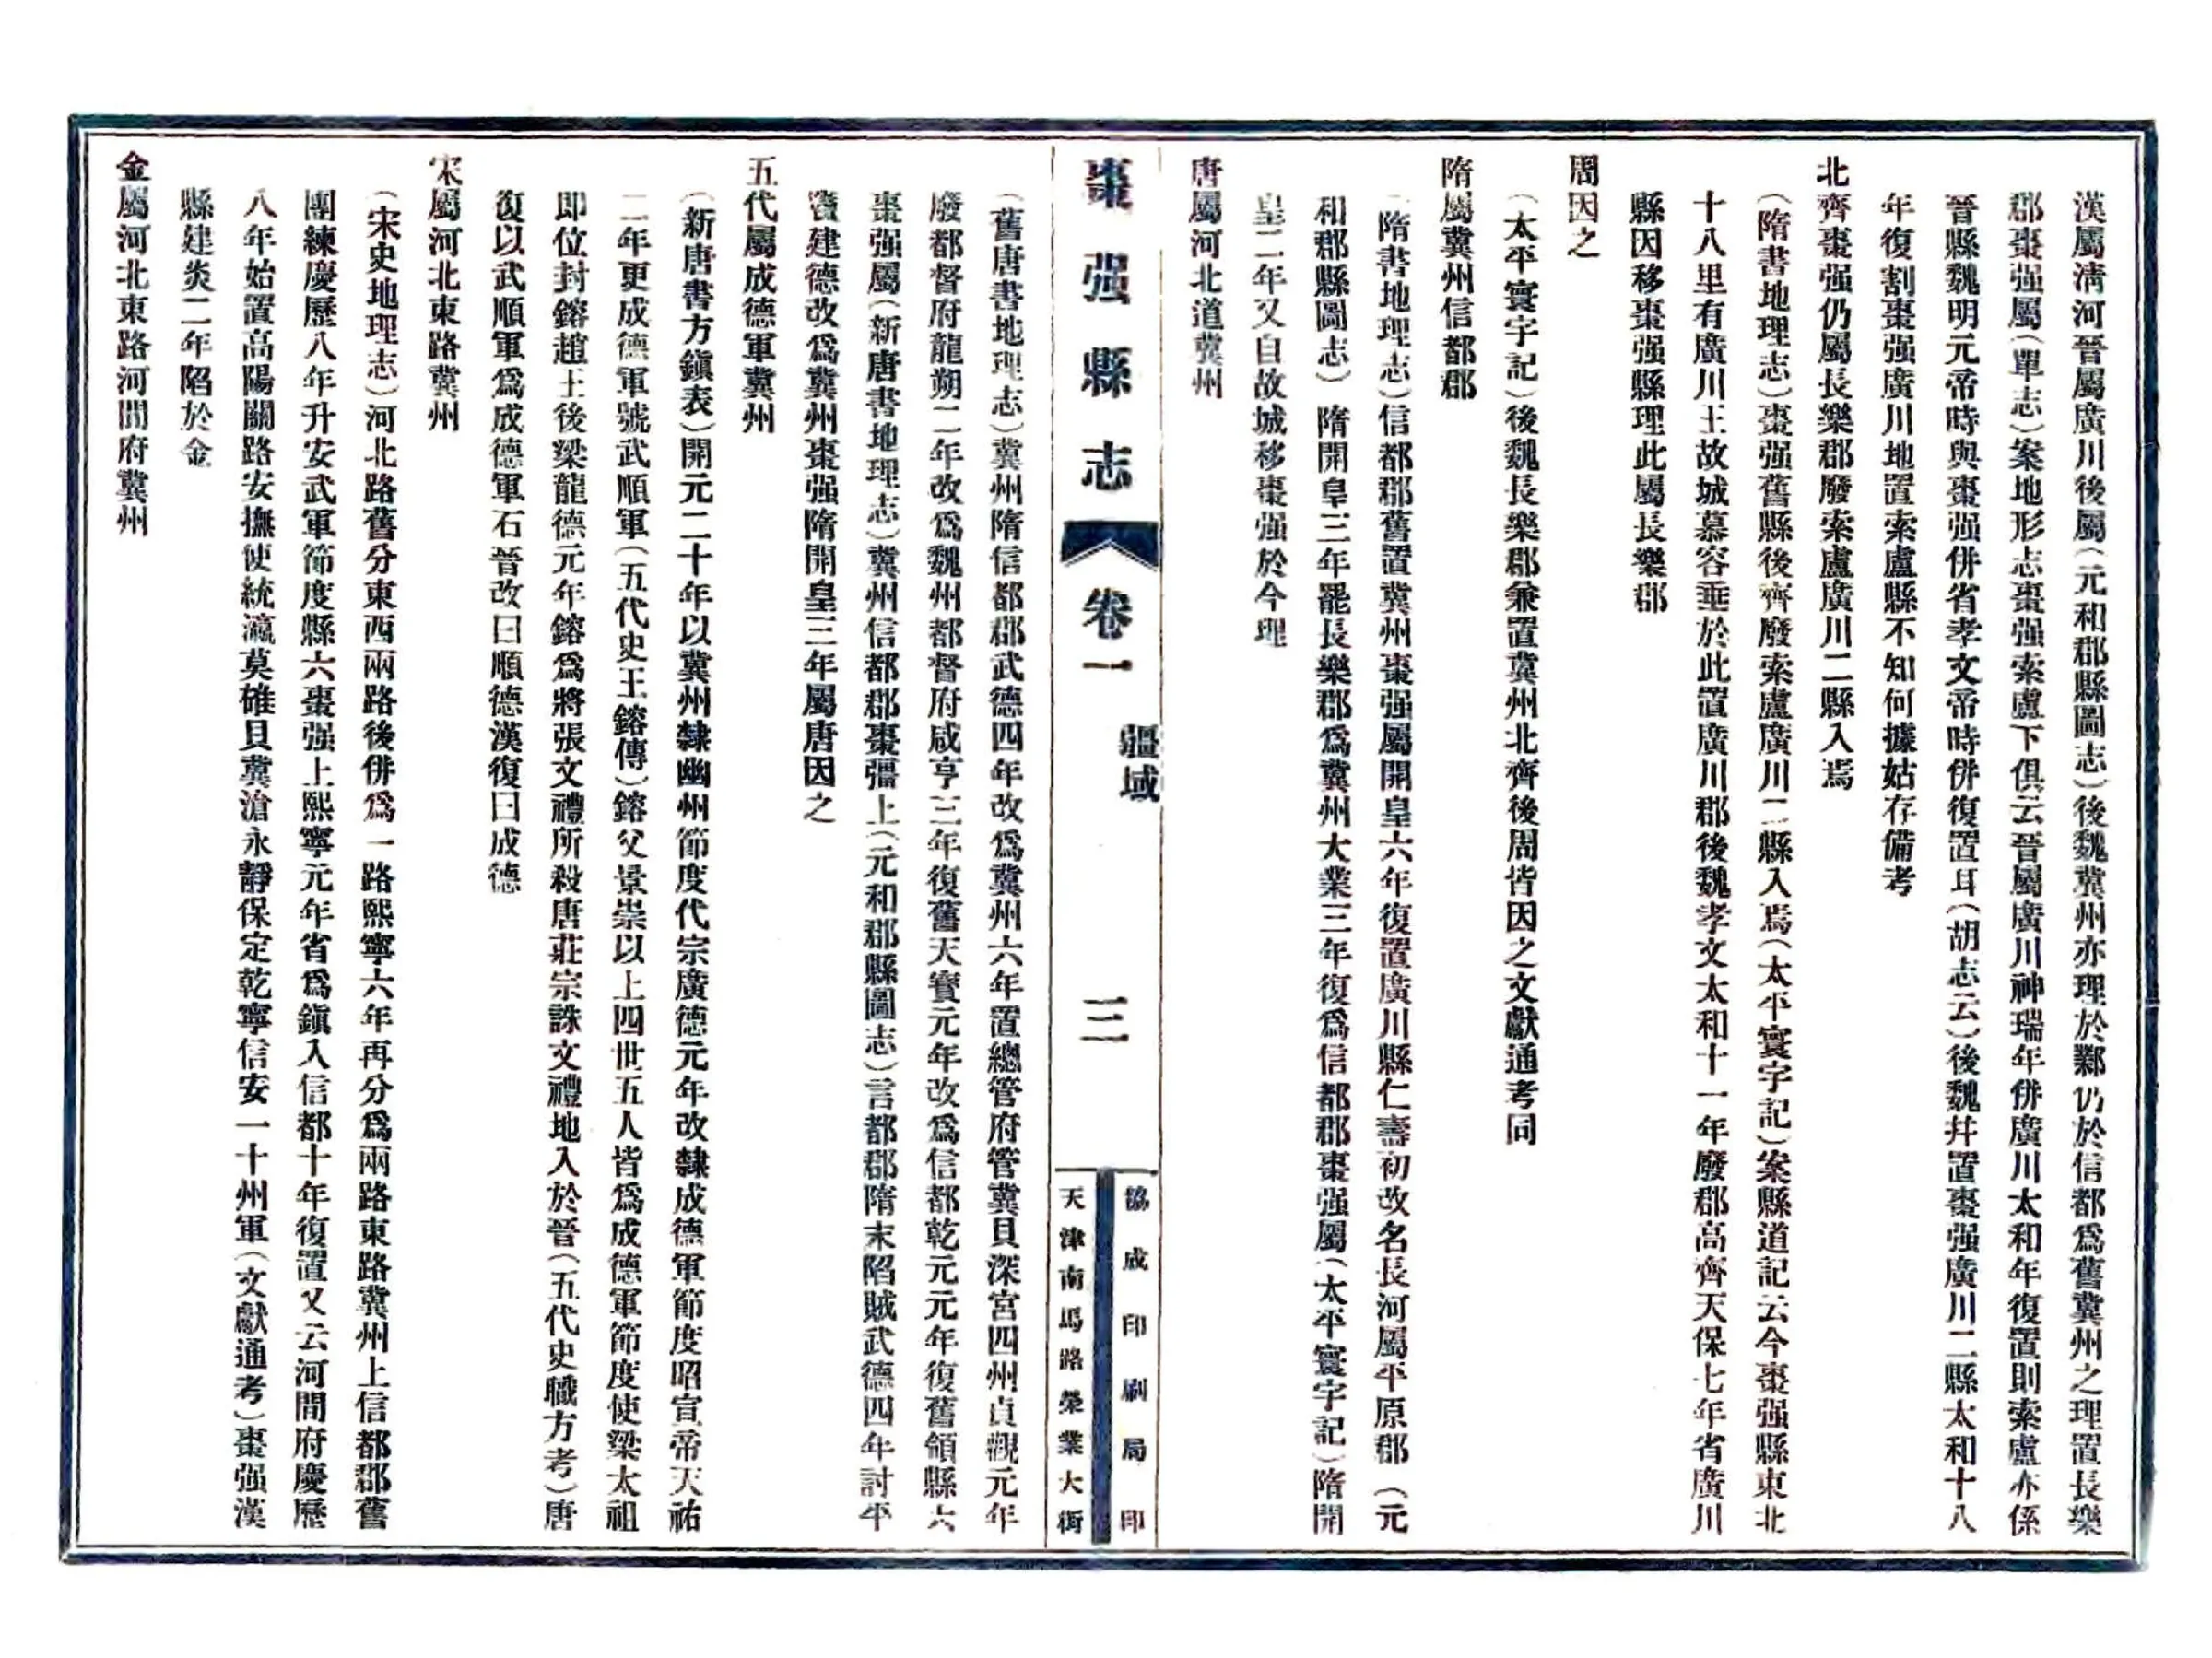 漢屬清河晉屬廣川後屬（元和郡縣圖志）後魏冀州亦理於鄴仍於信都爲舊冀州之理置長樂
郡棗强屬（單志）案地形志棗强索盧下俱云晉屬廣川神瑞年併廣川太和年復置則索盧亦係
晉縣魏明元帝時與棗强併省孝文帝時併復置耳（胡志云）後魏幷置棗强廣川二縣太和十八
年復割棗强廣川地置索盧縣不知何據姑存備考
北齊棗强仍屬長樂郡廢索盧廣川二縣入焉
（隋書地理志）棗强舊縣後齊廢索盧廣川二縣入焉（太平寰宇記）案縣道記云今棗强縣東北
十八里有廣川王故城慕容垂於此置廣川郡後魏孝文太和十一年廢郡高齊天保七年省廣川
縣因移棗强縣理此屬長樂郡
周因之
（太平寰宇記）後魏長樂郡兼置冀州北齊後周皆因之文獻通考同
隋屬冀州信都郡
（隋書地理志）信都郡舊置冀州棗强屬開皇六年復置廣川縣仁壽初改名長河屬平原郡（元
和郡縣圖志）隋開皇三年罷長樂郡爲冀州大業三年復爲信都郡棗强屬（太平寰宇記）隋開
皇二年又自故城移棗强於今理
唐屬河北道冀州
棗强縣志 卷一 疆域 三 協成印刷局印 天津南馬路榮業大街
（舊唐書地理志）冀州隋信都郡武德四年改爲冀州六年置總管府管冀貝深宮四州貞觀元年
廢都督府龍朔二年改爲魏州都督府咸亨三年復舊天寳元年改爲信都乾元元年復舊領縣六
棗强屬（新唐書地理志）冀州信都郡棗彊上（元和郡縣圖志）言都郡隋末陷賊武德四年討平
竇建德改爲冀州棗强隋開皇三年屬唐因之
五代屬成德軍冀州
（新唐書方鎭表）開元二十年以冀州隸幽州節度代宗廣德元年改隸成德軍節度昭宣帝天祐
二年更成德軍號武順軍（五代史王鎔傳）鎔父景崇以上四世五人皆爲成德軍節度使梁太祖
即位封鎔趙王後梁龍德元年鎔爲將張文禮所殺唐莊宗誅文禮地入於晉（五代史職方考）唐
復以武順軍爲成德軍石晉改曰順德漢復曰成德
宋屬河北東路冀州
（宋史地理志）河北路舊分東西兩路後併爲一路熙寧六年再分爲兩路東路冀州上信都郡舊
團練慶歷八年升安武軍節度縣六棗强上熙寧元年省爲鎭入信都十年復置又云河間府慶歷
八年始置高陽關路安撫使統瀛莫碓貝冀滄永靜保定乾寧信安一十州軍（文獻通考）棗强漢
縣建炎二年陷於金
金屬河北東路河間府冀州